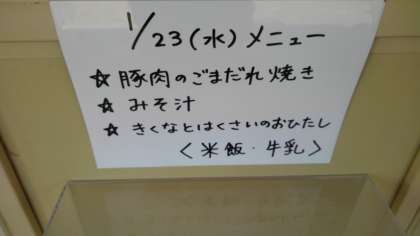 1/23(水)メニュー
☆豚肉のごまだれ焼き
☆みそ汁
☆きくなとはくさいのおひたし
〈米飯・牛乳〉